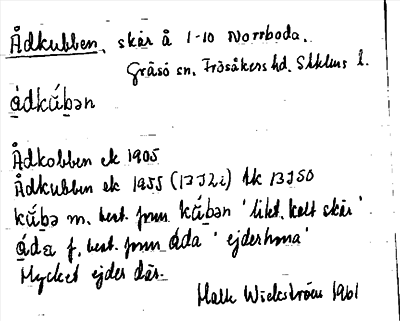 Ådkubben, skär å 1-10 Norrboda.
Gräsö sn, Frösåkers hd, Sthlms l.
ádkǘbən
Ådkobben ek 1905
Ådkubben ek 1955 (13J2i) tk 13J50
kǘbə m. best. form kǘbən 'litet, kalt skär'
ádɛ f. best. form áda 'ejderhona'
Mycket ejder där.
Mats Wickström 1961